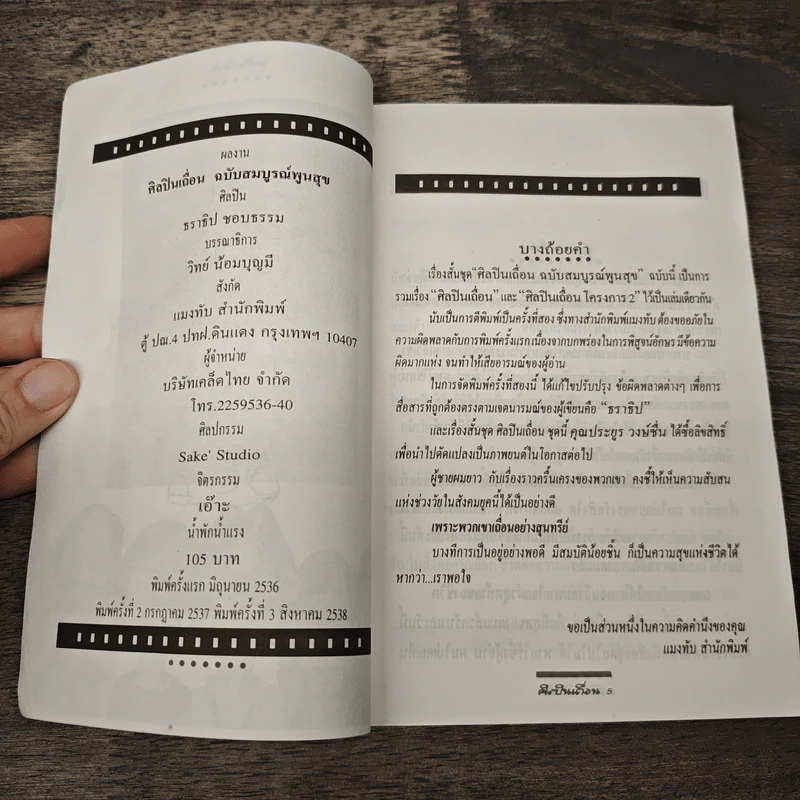 ผลงาน
ศิลปินเถื่อน ฉบับสมบูรณ์พูนสุข
ศิลปิน
ธราธิป ชอบธรรม
บรรณาธิการ
วิทย์ น้อมบุญมี
สังกัด
แมงทับ สำนักพิมพ์
ตู้ ปณ.4 ปทฝ.ดินแดง กรุงเทพฯ 10407
ผู้จำหน่าย
บริษัทเคล็ดไทย จำกัด
โทร.2259536-40
ศิลปกรรม
Sake' Studio
จิตรกรรม
เอ๊าะ
น้ำพักน้ำแรง
105 บาท
พิมพ์ครั้งแรก มิถุนายน 2536
พิมพ์ครั้งที่ 2 กรกฎาคม 2537 พิมพ์ครั้งที่ 3 สิงหาคม 2538
บางถ้อยคำ
เรื่องสั้นชุด"ศิลปินเถื่อน ฉบับสมบูรณ์พูนสุข" ฉบับนี้ เป็นการ
รวมเรื่อง "ศิลปินเถื่อน" และ "ศิลปินเถื่อน โครงการ 2" ไว้เป็นเล่มเดียวกัน
นับเป็นการตีพิมพ์เป็นครั้งที่สอง ซึ่งทางสำนักพิมพ์แมงทับ ต้องขออภัยใน
ความผิดพลาดกับการพิมพ์ครั้งแรก เนื่องจากบกพร่องในการพิสูจน์อักษร มีข้อความ
ผิดมากแห่ง จนทำให้เสียอารมณ์ของผู้อ่าน
ในการจัดพิมพ์ครั้งที่สองนี้ ได้แก้ไขปรับปรุง ข้อผิดพลาดต่างๆ เพื่อการ
สื่อสารที่ถูกต้องตรงตามเจตนารมณ์ของผู้เขียนคือ "ธราธิป"
และเรื่องสั้นชุด ศิลปินเถื่อน ชุดนี้ คุณประยูร วงษ์ชื่น ได้ซื้อลิขสิทธิ์
เพื่อนำไปดัดแปลงเป็นภาพยนต์ในโอกาสต่อไป
ผู้ชายผมยาว กับเรื่องราวครื้นเครงของพวกเขา คงชี้ให้เห็นความสับสน
แห่งช่วงวัยในสังคมยุคนี้ได้เป็นอย่างดี
เพราะพวกเขาเถื่อนอย่างสุนทรีย์
บางทีการเป็นอยู่อย่างพอดี มีสมบัติน้อยชิ้น ก็เป็นความสุขแห่งชีวิตได้
หากว่า...เราพอใจ
ขอเป็นส่วนหนึ่งในความคิดคำนึงของคุณ
แมงทับ สำนักพิมพ์
ศิลปินเถื่อน 5